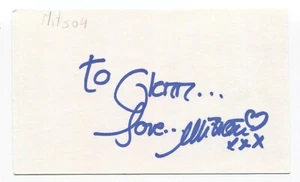 Mitsou
to Glenn...
love.. Mitsou ♡
xxx